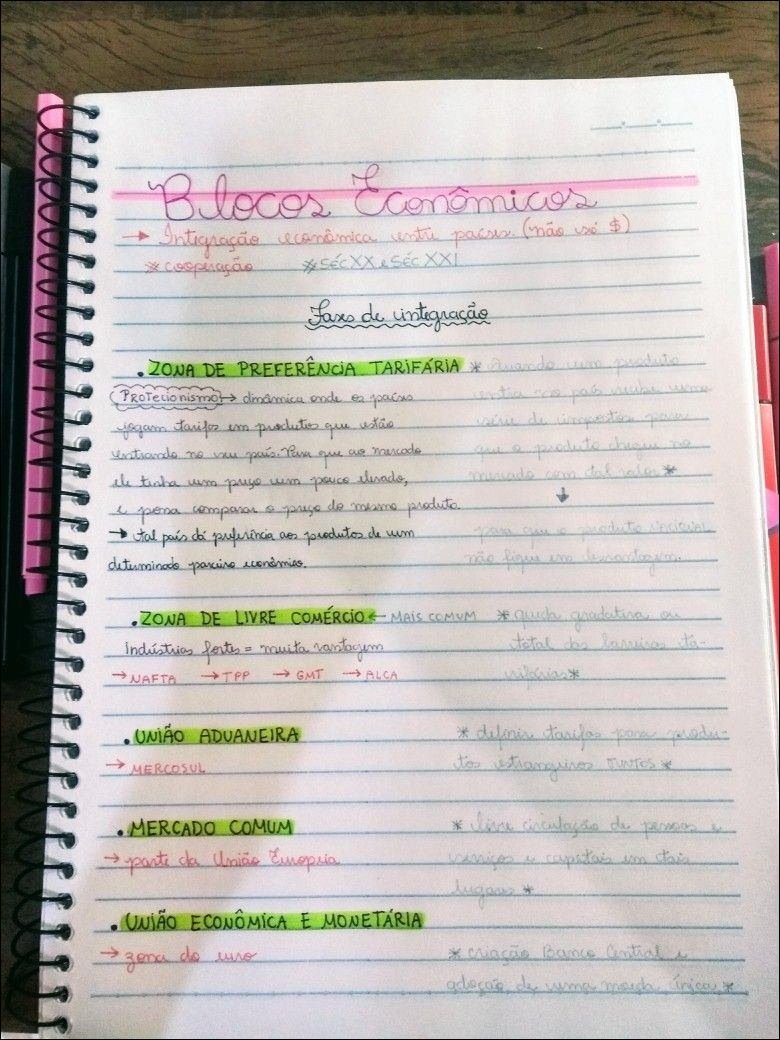 Blocos Econômicos
→ Integração econômica entre países. (não só $)
* cooperação * SÉC XX e SÉC XXI
Fases de integração
. ZONA DE PREFERÊNCIA TARIFÁRIA * Quando um produto
Protecionismo → dinâmica onde os países entra no país recebe uma
jogam tarifas em produtos que estão série de impostos para
entrando no seu país. Para que ao mercado que o produto chegue no
ele tenha um preço um pouco elevado, mercado com tal valor *
e possa comparar o preço do mesmo produto. ↓
→ tal país dá preferência aos produtos de um para que o produto NACIONAL
determinado parceiro econômico. não fique em desvantagem.
. ZONA DE LIVRE COMÉRCIO ← MAIS COMUM * queda gradativa ou
Indústrias fortes = muita vantagem total das barreiras ta-
→ NAFTA → TPP → GMT → ALCA rifárias *
. UNIÃO ADUANEIRA * definir tarifas para produ-
→ MERCOSUL tos estrangeiros *
. MERCADO COMUM * livre circulação de pessoas e
→ parte da União Europeia serviços e capitais em tais
lugares *
. UNIÃO ECONÔMICA E MONETÁRIA
→ zona do euro * criação Banco Central e
adoção de uma moeda única *